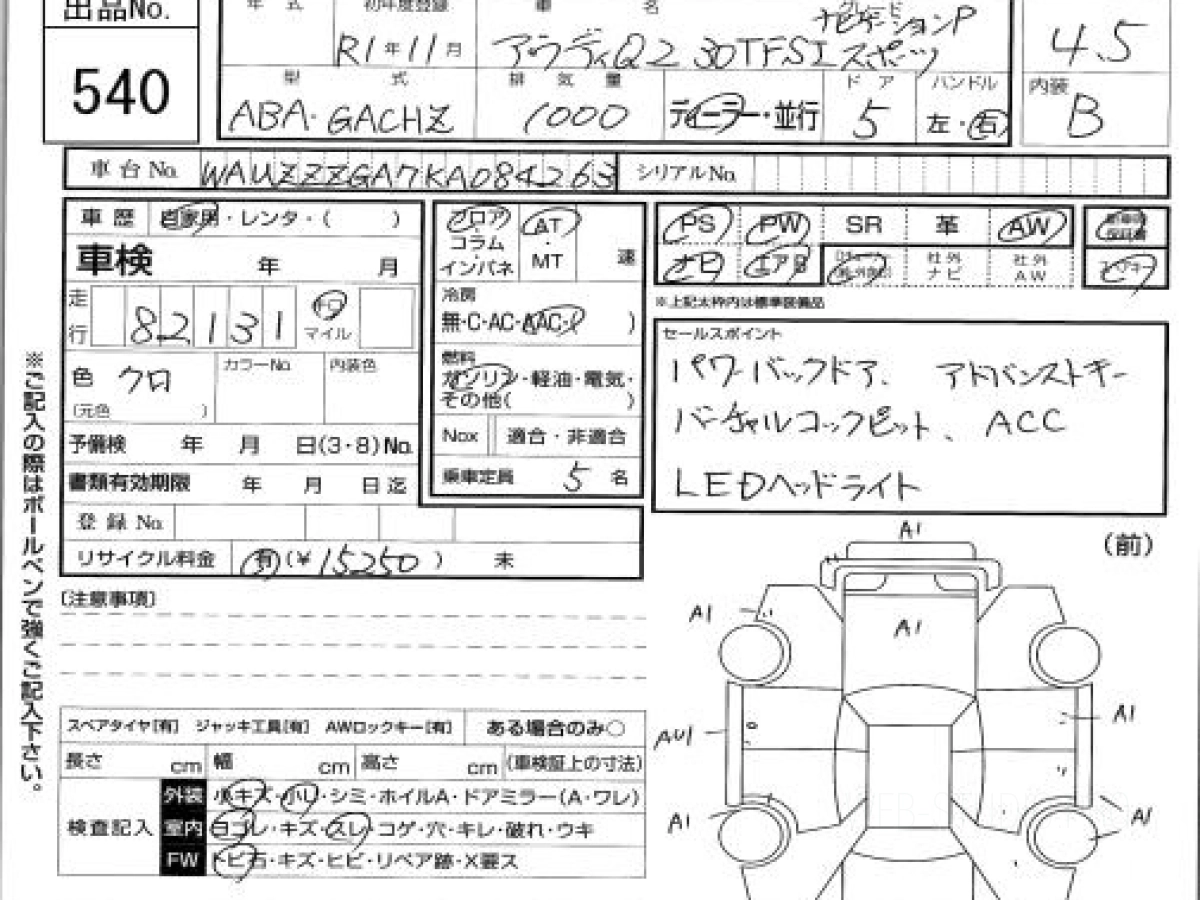 出品No.
540
年 式
初年度登録
R1年11月
車 名
グレード
アウディQ2 30TFSIスポーツ
ナビゲーションP
4.5
型 式
ABA・GACHZ
排 気 量
1000
ディーラー・並行
ドア
5
ハンドル
左・右
内装
B
車台No. WAUZZZGA7KA084263
シリアルNo.
車歴 自家用・レンタ・( )
車検 年 月
走行 82131 キロ マイル
色 クロ
(元色 )
カラーNo.
内装色
予備検 年 月 日(3・8)No.
書類有効期限 年 月 日迄
登録No.
リサイクル料金 有(¥15250) 未
フロア
コラム
インパネ
AT・MT
速
冷房
無・C・AC・AAC・( )
燃料
ガソリン・軽油・電気・
その他( )
Nox 適合・非適合
乗車定員 5 名
PS PW SR 革 AW
ナビ エアB
社外ナビ
社外AW
※上記太枠内は標準装備品
セールスポイント
パワーバックドア、 アドバンストキー
バーチャルコックピット、ACC
LEDヘッドライト
※ご記入の際はボールペンで強くご記入下さい。
〔注意事項〕
スペアタイヤ[有] ジャッキ工具[有] AWロックキー[有] ある場合のみ○
長さ cm 幅 cm 高さ cm (車検証上の寸法)
検査記入
外装 小キズ・小U・シミ・ホイルA・ドアミラー(A・ワレ)
室内 ヨゴレ・キズ・スレ・コゲ・穴・キレ・破れ・ウキ
FW トビ石・キズ・ヒビ・リペア跡・X要ス
(前)
A1
A1
A1
AU1
A1
A1
A1